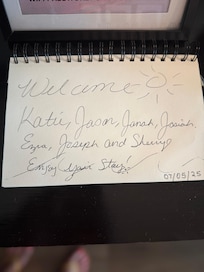 Welcome
Katie, Jason, Jonah, Josiah,
Ezra, Joseph and Sherry
Enjoy your Stay!
07/05/25